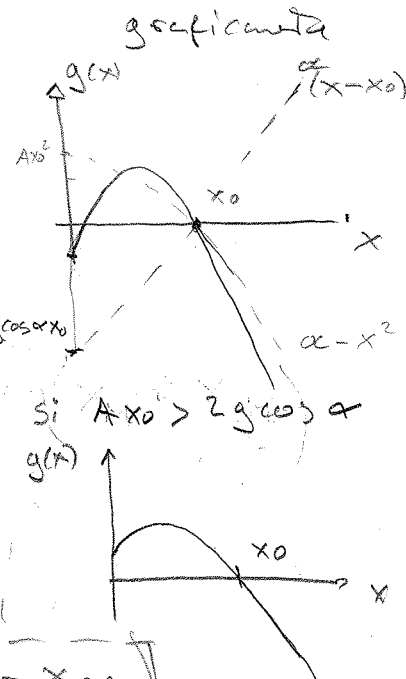 graficamente
g(x)
α(x-x0)
Ax0²
x0
x
gcosαx0
α-x²
si Ax0 > 2gcosα
g(x)
x0
x